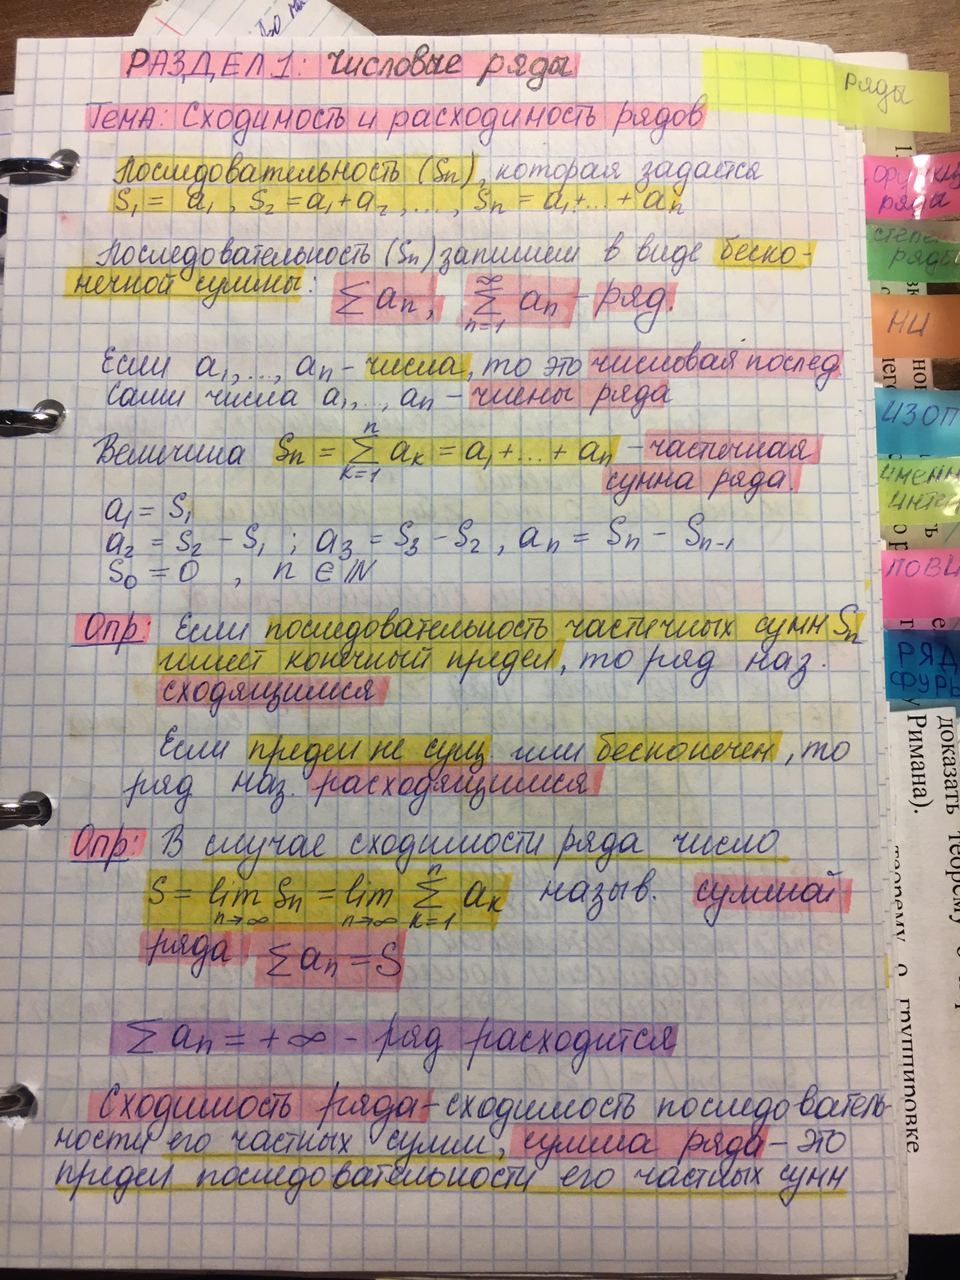 до
РАЗДЕЛ 1: Числовые ряды
Тема: Сходимость и расходимость рядов
Последовательность (Sn), которая задается
S₁ = a₁, S₂ = a₁+a₂, ..., Sn = a₁+...+an
Последовательность (Sn) запишем в виде беско-
нечной суммы: ∑an, ∑_{n=1}^{∞} an - ряд.
Если a₁,..., an - числа, то это числовая послед.
Сами числа a₁,.., an - члены ряда
Величина Sn = ∑_{k=1}^{n} ak = a₁+...+an - частичная
сумма ряда.
a₁ = S₁
a₂ = S₂ - S₁ ; a₃ = S₃ - S₂, an = Sn - Sn-1
S₀ = 0 , n ∈ ℕ
Опр: Если последовательность частичных сумм Sn
имеет конечный предел, то ряд наз.
сходящимся
Если предел не сущ или бесконечен, то
ряд наз. расходящимся
Опр: В случае сходимости ряда число
S = lim_{n→∞} Sn = lim_{n→∞} ∑_{k=1}^{n} ak назыв. суммой
ряда ∑an = S
∑an = +∞ - ряд расходится
Сходимость ряда - сходимость последователь-
ности его частных сумм, сумма ряда - это
предел последовательности его частных сумм
ряды
ряда
ряды
НИ
ИЗОП
ПОВИ
РЯД
ФУРЬ
доказать теорему
Римана).
теорему о группировке